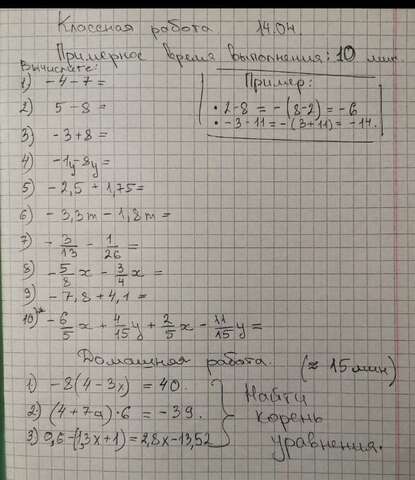 Классная работа 14.04.
Примерное время выполнения: 10 мин.
Вычислите:
Пример:
• 2-8 = -(8-2) = -6
• -3-11 = -(3+11) = -14.
1) -4-7=
2) 5-8=
3) -3+8=
4) -1y-8y=
5) -2,5+1,75=
6) -3,3m-1,8m=
7) -3/13 - 1/26 =
8) -5/8 x - 3/4 x =
9) -7,8+4,1=
10)* -6/5 x + 4/15 y + 2/5 x - 11/15 y =
Домашняя работа. (≈ 15 мин)
1) -8(4-3x) = 40.
2) (4+7a)·6 = -39.
3) 0,6-(1,3x+1)=2,8x-13,52
Найти
корень
уравнения.